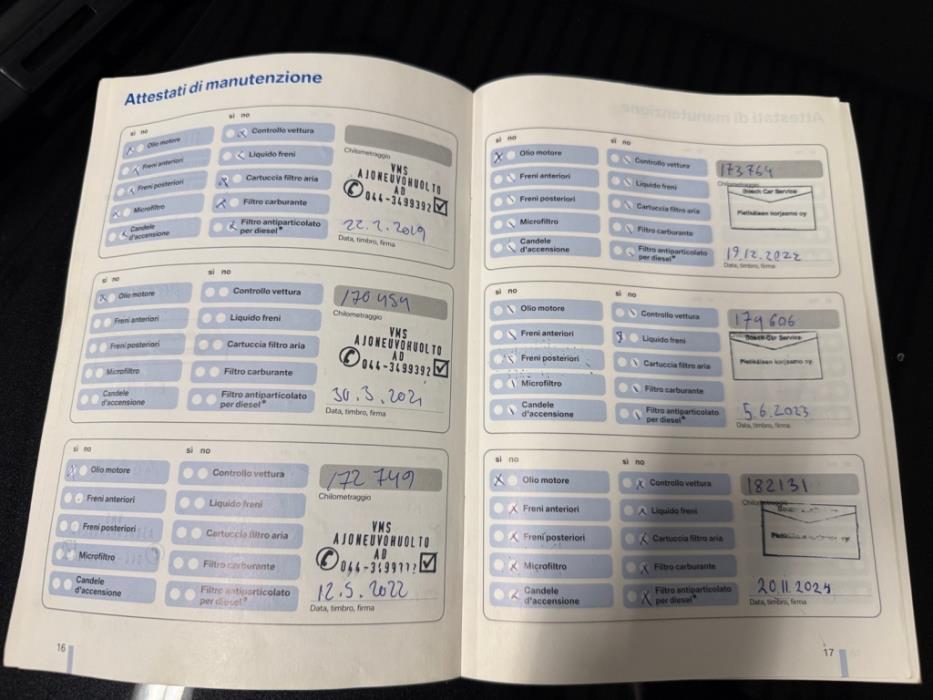 Attestati di manutenzione
sì no
sì no
Olio motore
Controllo vettura
Freni anteriori
Liquido freni
Freni posteriori
Cartuccia filtro aria
Microfiltro
Filtro carburante
Candele d'accensione
Filtro antiparticolato per diesel*
Chilometraggio
VMS
AJONEUVOHUOLTO
AD
044-3499392
Data, timbro, firma
sì no
sì no
Olio motore
Controllo vettura
Freni anteriori
Liquido freni
Freni posteriori
Cartuccia filtro aria
Microfiltro
Filtro carburante
Candele d'accensione
Filtro antiparticolato per diesel*
170 454
Chilometraggio
VMS
AJONEUVOHUOLTO
AD
044-3499392
30.3.2021
Data, timbro, firma
sì no
sì no
Olio motore
Controllo vettura
Freni anteriori
Liquido freni
Freni posteriori
Cartuccia filtro aria
Microfiltro
Filtro carburante
Candele d'accensione
Filtro antiparticolato per diesel*
172 749
Chilometraggio
VMS
AJONEUVOHUOLTO
AD
12.5.2022
Data, timbro, firma
16
sì no
sì no
Olio motore
Controllo vettura
Freni anteriori
Liquido freni
Freni posteriori
Cartuccia filtro aria
Microfiltro
Filtro carburante
Candele d'accensione
Filtro antiparticolato per diesel*
173764
Chilometraggio
Bosch Car Service
Pietikäisen korjaamo oy
19.12.2022
Data, timbro, firma
sì no
sì no
Olio motore
Controllo vettura
Freni anteriori
Liquido freni
Freni posteriori
Cartuccia filtro aria
Microfiltro
Filtro carburante
Candele d'accensione
Filtro antiparticolato per diesel*
179606
Bosch Car Service
Pietikäisen korjaamo oy
5.6.2023
Data, timbro, firma
sì no
sì no
Olio motore
Controllo vettura
Freni anteriori
Liquido freni
Freni posteriori
Cartuccia filtro aria
Microfiltro
Filtro carburante
Candele d'accensione
Filtro antiparticolato per diesel*
182131
20.11.2024
Data, timbro, firma
17